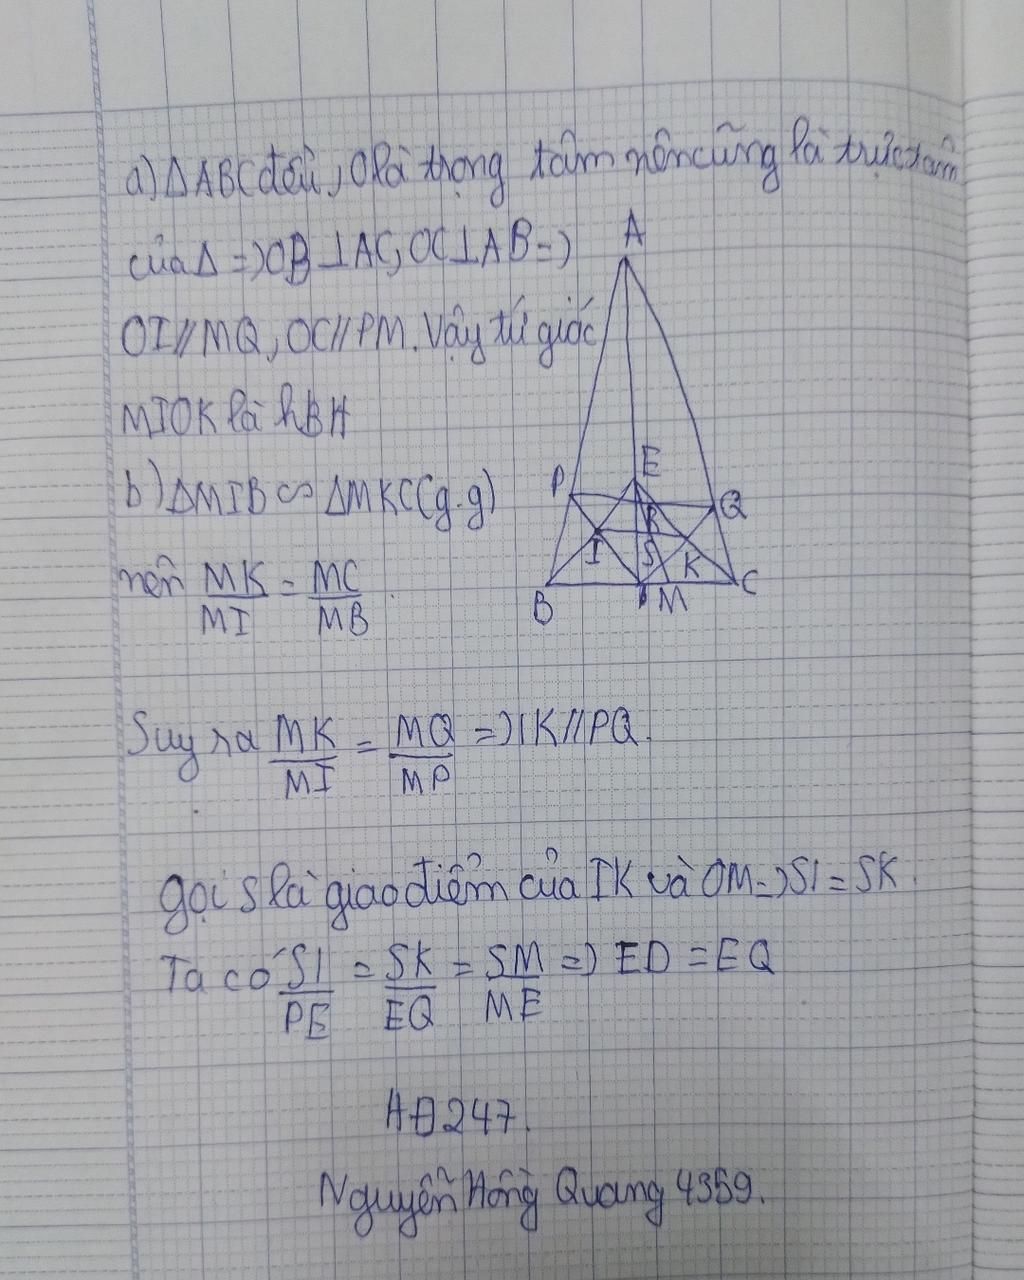 a) ΔABC đều, O là trọng tâm nên cũng là trực tâm
của Δ => OB ⊥ AC, OC ⊥ AB =>
OI // MQ, OC // PM. Vậy tứ giác
MIOK là hBH
b) ΔMIB ∽ ΔMKC (g.g)
nên MK/MI = MC/MB
Suy ra MK/MI = MQ/MP => IK // PQ.
gọi S là giao điểm của IK và OM => SI = SK.
Ta có SI/PE = SK/EQ = SM/ME => ED = EQ
HĐ247.
Nguyễn Hồng Quang 4359.
A
E
P
Q
R
I
S
K
B
M
C